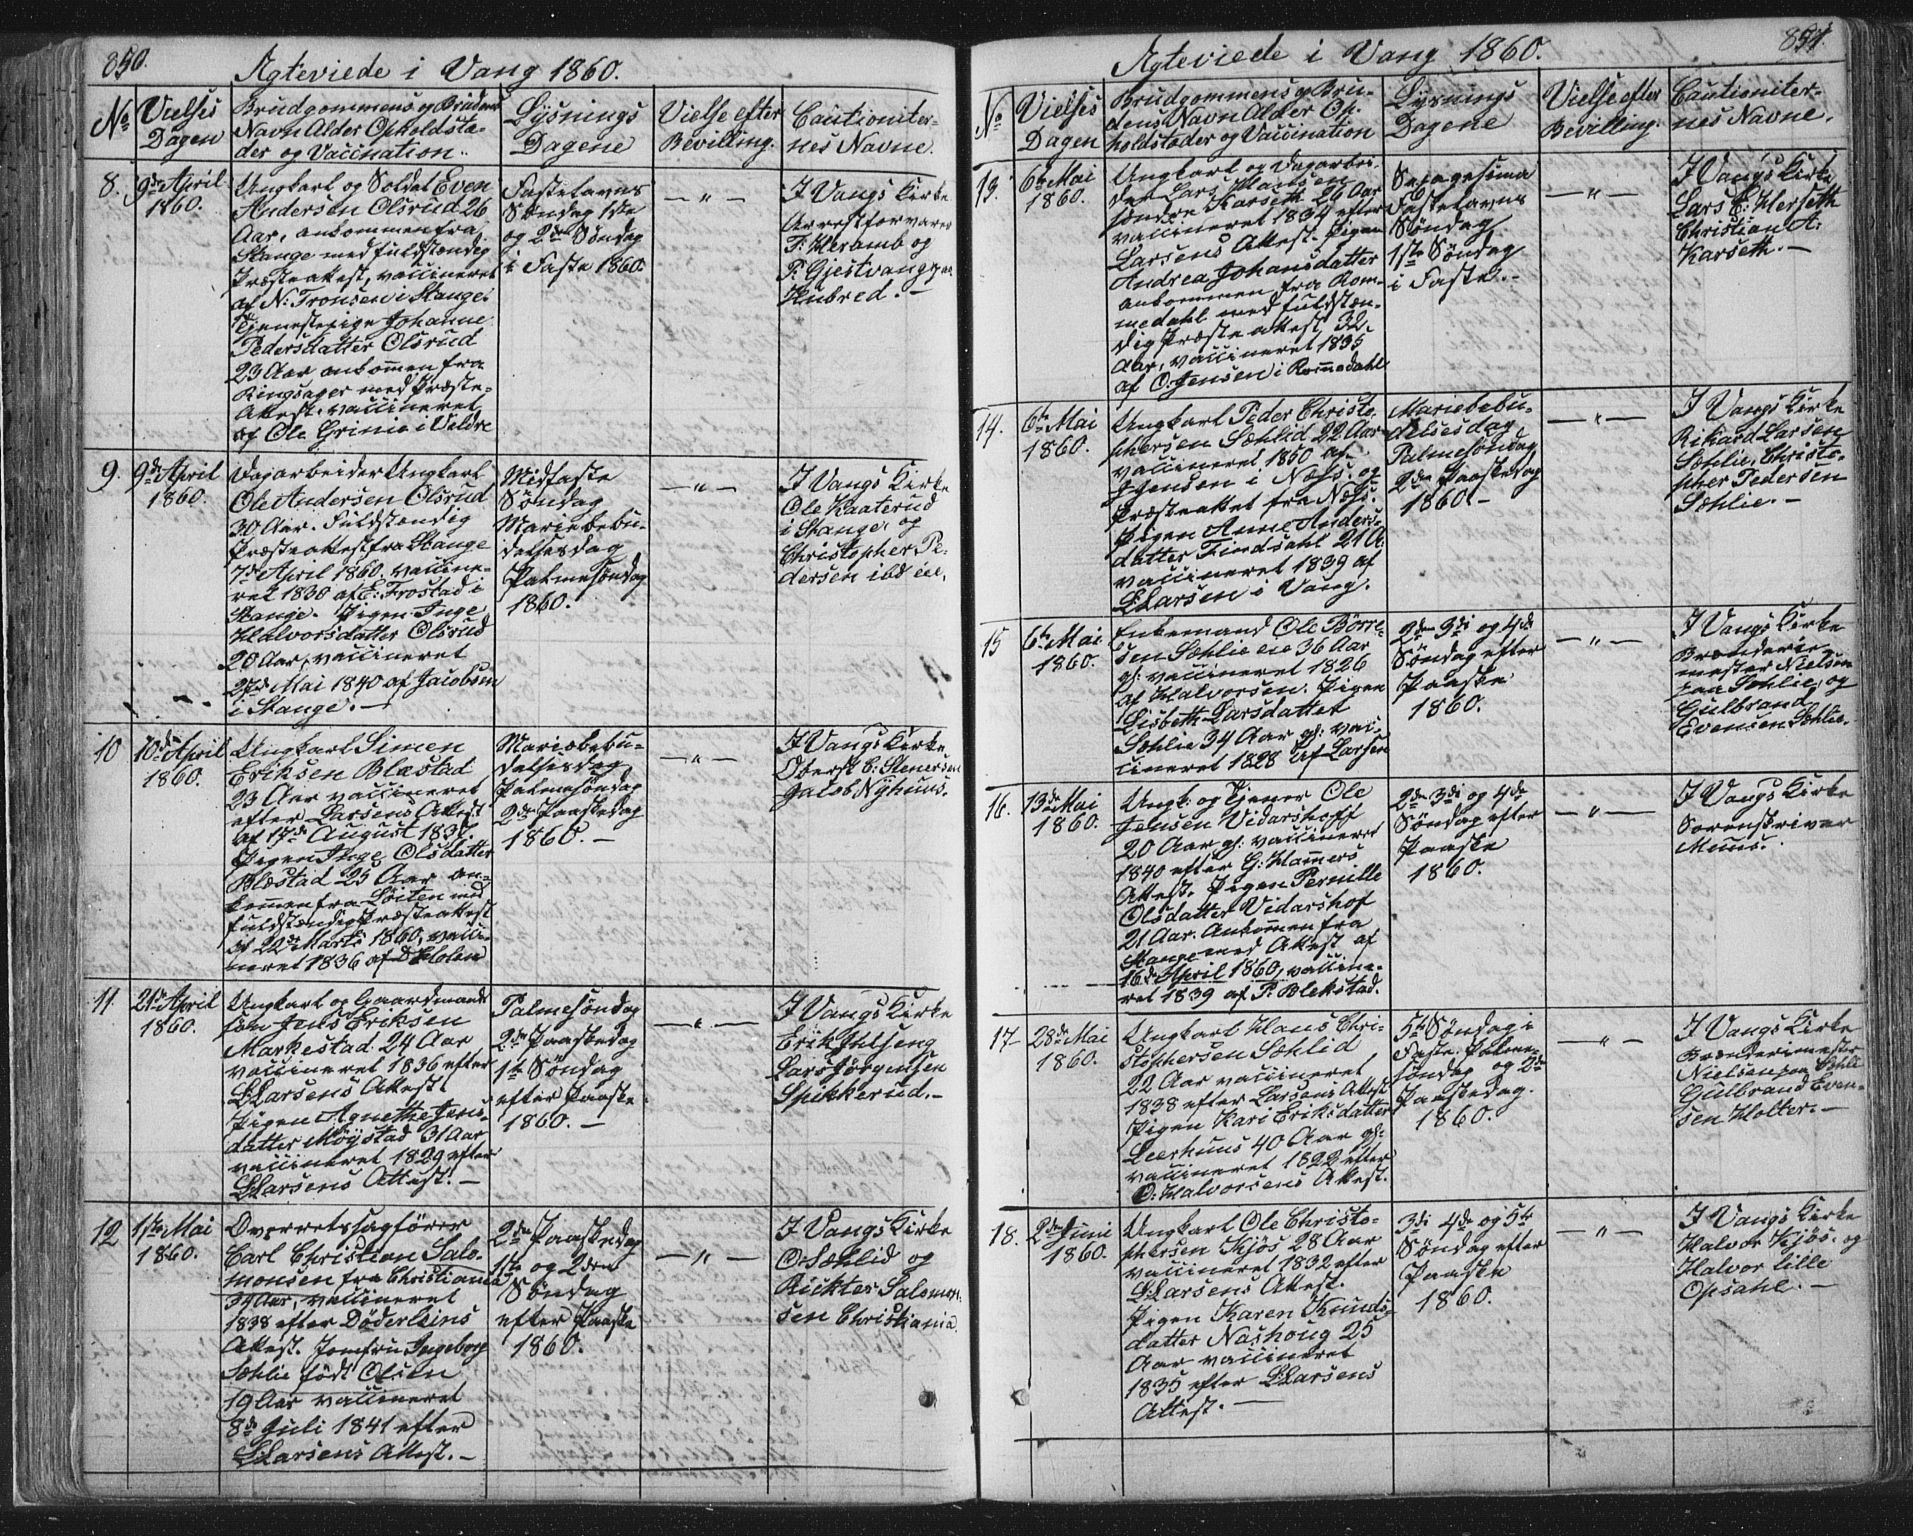 850.
Agteviede i Vang 1860.
No
Vielses
Dagen
Brudgommens og Brudens
Navn Alder Opholdsste-
der og Vaccination.
Lysnings
Dagene
Vielse efter
Bevilling.
Cautioniter-
nes Navne.
8.
9de April
1860.
Ungkarl og Soldat Even
Andersen Olsrud 26
Aar, ankommen fra
Stange med fuldstændig
Præsteattest, vaccineret
af N. Tronsen i Stange.
Tjenestepige Johanne
Pedersdatter Olsrud
23 Aar ankommen fra
Ringsager med Præste-
Attest. vaccineret
af Ole Grinie i Veldre
Fastelavns
Søndag 1ste
og 2den Søndag
i Faste 1860.
— " —
I Vangs Kirke
Arrestforvarer
T. Heramb og
P. Gjestvang
Kubred. —
9.
9de April
1860.
Dagarbeider Ungkarl
Ole Andersen Olsrud
30 Aar. Fuldstændig
Præsteattest fra Stange
7de April 1860. vaccine-
ret 1830 af E. Frostad i
Stange. Pigen Inge
Halvorsdatter Olsrud
20 Aar, vaccineret
27de Mai 1840 af Jacobsen
i Stange. —
Midfaste
Søndag
Mariebebu-
delsesdag
Palmesøndag
1860.
— " —
I Vangs Kirke
Ole Kaaterud
i Stange og
Christopher Pe-
dersen ibd
10
10de April
1860.
Ungkarl Simen
Eriksen Blæstad
23 Aar vaccineret
efter Larsens Attest
af 17de August 1837.
Pigen Inge Olsdatter
Blæstad 25 Aar an-
kommen fra Løiten med
fuldstændig Præsteattest
af 22de Marts 1860, vacci-
neret 1836 af Holen
Mariebebu-
delsesdag
Palmesøndag
2den Paaskedag
1860. —
— " —
I Vangs Kirke
Oberst C. Stenersen
Jacob Nyhuus.
11.
21de April
1860.
Ungkarl og Gaardmands
søn Jens Eriksen
Markestad 24 Aar
vaccineret 1836 efter
L. Larsens Attest
Pigen Agnethe Jens-
datter Møystad 31 Aar
vaccineret 1829 efter
L. Larsens Attest. —
Palmesøndag
2den Paaskedag
1ste Søndag
efter Paaske
1860. —
— " —
I Vangs Kirke
Erik Julseng
Lars Jørgensen
Spikkerud. —
12
1ste Mai
1860.
Overretssagfører
Carl Christian Salo-
monsen fra Christiania
34 Aar, vaccineret
1838 efter Döderleins
Attest. Jomfru Ingeborg
Sæhlie født Olsen
19 Aar vaccineret
8de Juli 1841 efter
L. Larsens Attest. —
2den Paaskedag
1ste og 2den
Søndag
efter Paaske
1860.
— " —
I Vangs Kirke
O. Sæhlid og
Rickter Salomon-
sen Christiania
851.
Agteviede i Vang 1860.
No
Vielses
Dagen
Brudgommens og Bru-
dens Navn Alder Op-
holdssteder og Vaccination
Lysnings
Dagene
Vielse efter
Bevilling.
Cautioniter-
nes Navne.
13.
6te Mai
1860.
Ungkarl og Dagarbei-
der Lars Madsen
søndre Karseth 26 Aar
vaccineret 1834 efter
Larsens Attest. Pigen
Andrea Johansdatter
ankommen fra Rom-
medahl med fuldstæn-
dig Præsteattest 32
Aar, vaccineret 1835
af O. Jensen i Rommedahl
Sexagesima
Fastelavns
Søndag
1ste Søndag
i Faste. —
— " —
I Vangs Kirke
Lars E. Herseth
Christian A.
Karseth. —
14.
6te Mai
1860.
Ungkarl Peder Christo-
phersen Sæhlid 22 Aar
vaccineret 1860 af
Jensen i Næss og
Præsteattest fra Næss.
Pigen Anne Anders-
datter Findsahl 21 A.
vaccineret 1839 af
L. Larsen i Vang.
Mariebebu-
delsesdag
Palmesøndag
2den Paaskedag
1860. —
— " —
I Vangs Kirke
Rikard Larsen
Sæhlie, Christo-
pher Pedersen
Sæhlie. —
15
6te Mai
1860.
Enkemand Ole Børre-
sen Sæhlie eie 36 Aar
gl: vaccineret 1826
af Halvorsen. Pigen
Lisbeth Larsdatter
Sæhlie 34 Aar gl: vac-
cineret 1828 af Larsen
2den 3die og 4de
Søndag efter
Paaske
1860.
— " —
I Vangs Kirke
Brænderie-
mester Nielsen
paa Sæhlie, og
Gulbrand
Evensen Sæhlie.
16.
13de Mai
1860.
Ungk: og Tjener Ole
Jensen Vidarshoff
20 Aar gl: vaccineret
1840 efter G. Hammers
Attest. Pigen Pernille
Olsdatter Vidarshof
21 Aar. Ankommen fra
Stange med Attest af
16de April 1860, vaccine-
ret 1839 af P. Blekstad.
2den 3die og 4de
Søndag efter
Paaske
1860.
— " —
I Vangs Kirke
Sorenskriver
17
28de Mai
1860.
Ungkarl Hans Chri-
stophersen Sæhlid
22 Aar vaccineret
1838 efter Larsens Attest
Pigen Kari Eriksdatter
Leerhuus 40 Aar gl:
vaccineret 1822 efter
O. Halvorsens Attest.
5te Søndag i
Faste. Palme-
søndag og 2den
Paaskedag.
1860.
— " —
I Vangs Kirke
Brænderimester
Nielsen paa Sæhli
Gulbrand Even-
sen Holter. —
18.
2den Juni
1860.
Ungkarl Ole Christo-
phersen Kjøs 28 Aar
vaccineret 1832 efter
L. Larsens Attest.
Pigen Karen Knuds-
datter Nashoug 25
Aar vaccineret
1835 efter L. Larsens
Attest. —
3die 4de og 5te
Søndag efter
Paaske
1860.
— " —
I Vangs Kirke
Halvor Kjøs. og
Halvor lille
Opsahl. —